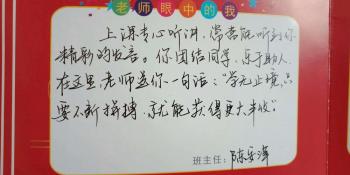 老师眼中的我
上课专心听讲,常常能听到你
精彩的发言。你团结同学,乐于助人。
在这里,老师送你一句话:“学无止境,只
要不断拼搏,就能获得更大丰收”。
班主任:陈